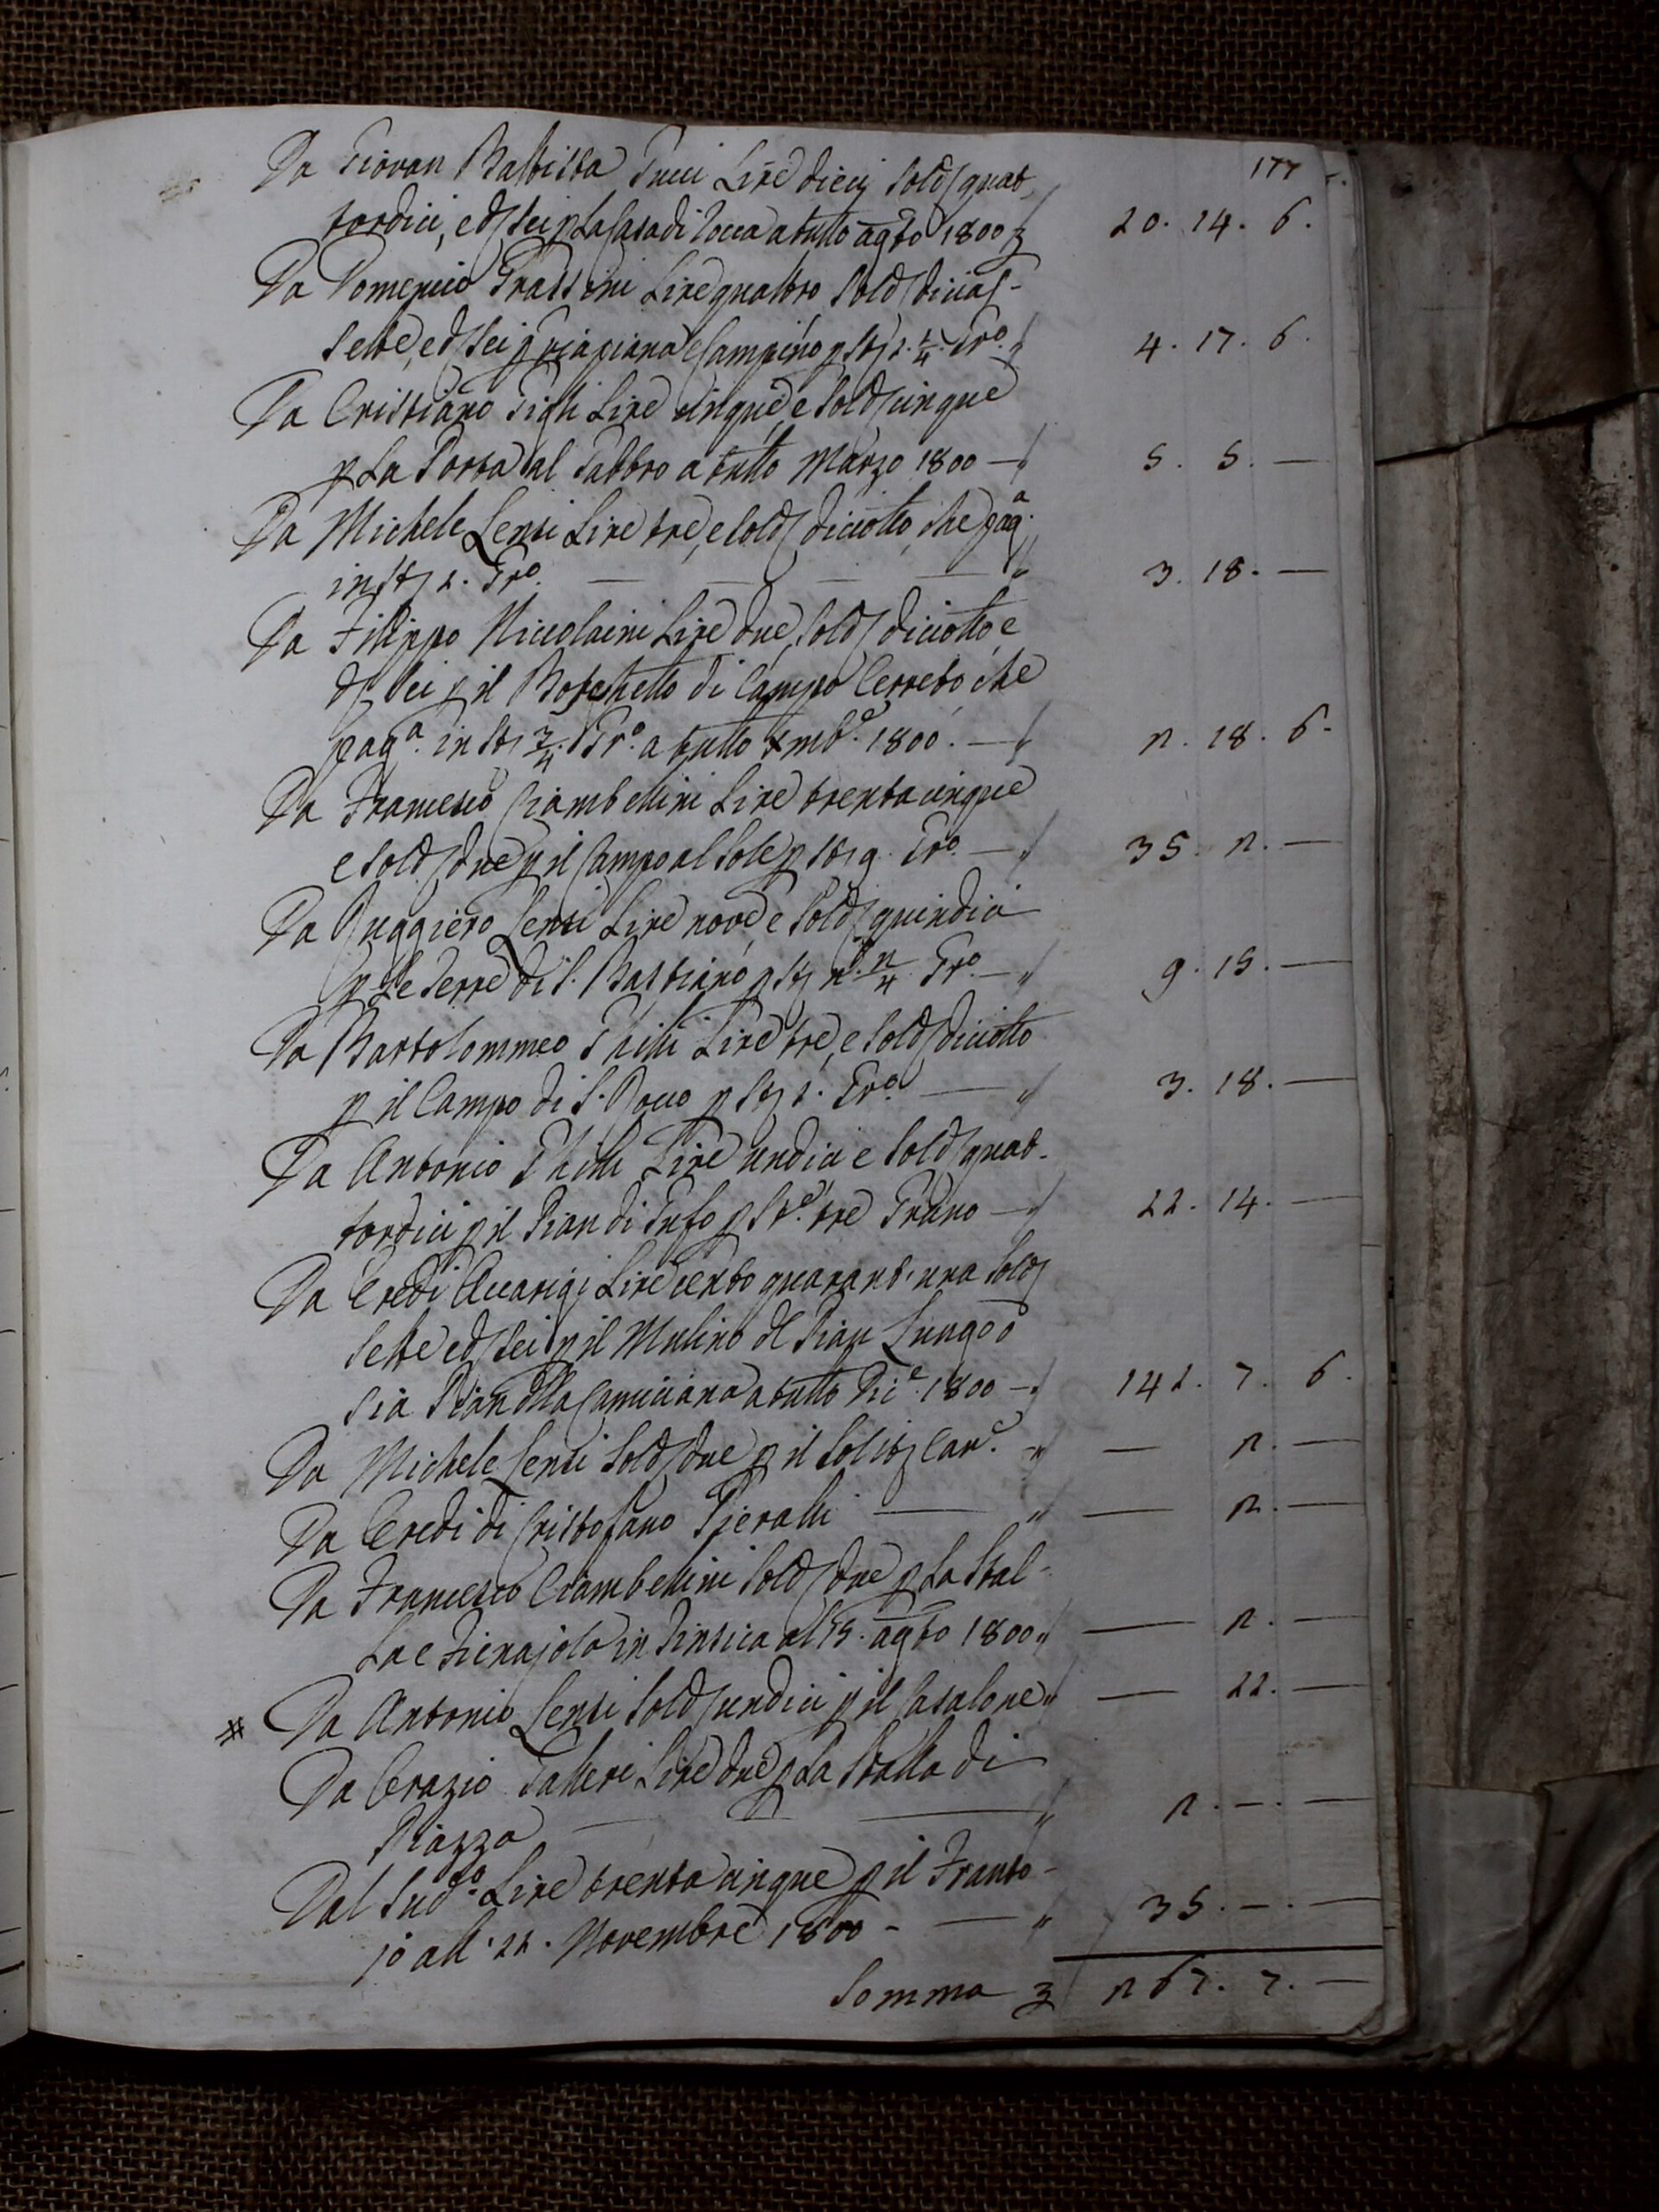 177
Da Giovan Battista Pucci Lire dieci Sold quat
tordici, e d sei p la Casa di Rocca a tutto agto 1800 20. 14. 6.
Da Domenico Grassini Lire quattro Sold dicias-
sette, e d sei p Campino p St 1. 1/4. Gro. 4. 17. 6.
Da Cristiano Tigli Lire cinque, e Sold cinque
p La Porta al Fabbro a tutto Marzo 1800 — 5. 5. —
Da Michele Lensi Lire tre, e Sold diciotto, che paga.
in St 1. Gro. — — — — 3. 18. —
Da Filippo Niccolaini Lire due, Sold diciotto, e
d sei p il Boschetto di Campo Cerreto, che
paga. in St 3/4. Gro. a tutto xmbe. 1800. — 2. 18. 6.
Da Francesco Ciambellini Lire trentacinque
e Sold due p il Campo al Sole p St 9. Gro. — 35. 2. —
Da Ruggiero Lensi Lire nove, e Sold quindici
p Le Terre di S. Bastiano p St 2. 2/4 Gro — 9. 15. —
Da Bartolommeo Lire tre, e Sold diciotto
p il Campo di S. Rocco p St 1. Gro. — 3. 18. —
Da Antonio Lire undici e Sold quat-
tordici p il Pian di Tufo p Ste. tre Grano — 11. 14. —
Da Eredi Accarigi Lire cento quarant'una Sold
sette e d sei p il Mulino del Pian Lungo o
sia Pian della Camiciana a tutto Dice. 1800 — 141. 7. 6.
Da Michele Lensi Sold due p il Solit Cane. — 2. —
Da Eredi di Cristofano Pieralli — — 2. —
Da Francesco Ciambellini Sold due p La Stal-
la e Fienajola in al 15. agto 1800 — 2. —
# Da Antonio Lensi Sold undici p il Casalone — 11. —
Da Orazio Galleri Lire due p La Stalla di
Piazza — — 2. —. —
Dal Sudo. Lire trentacinque p il Franto-
jo all' 11. Novembre 1800 - — 35. —. —
Somma 267. 7. —